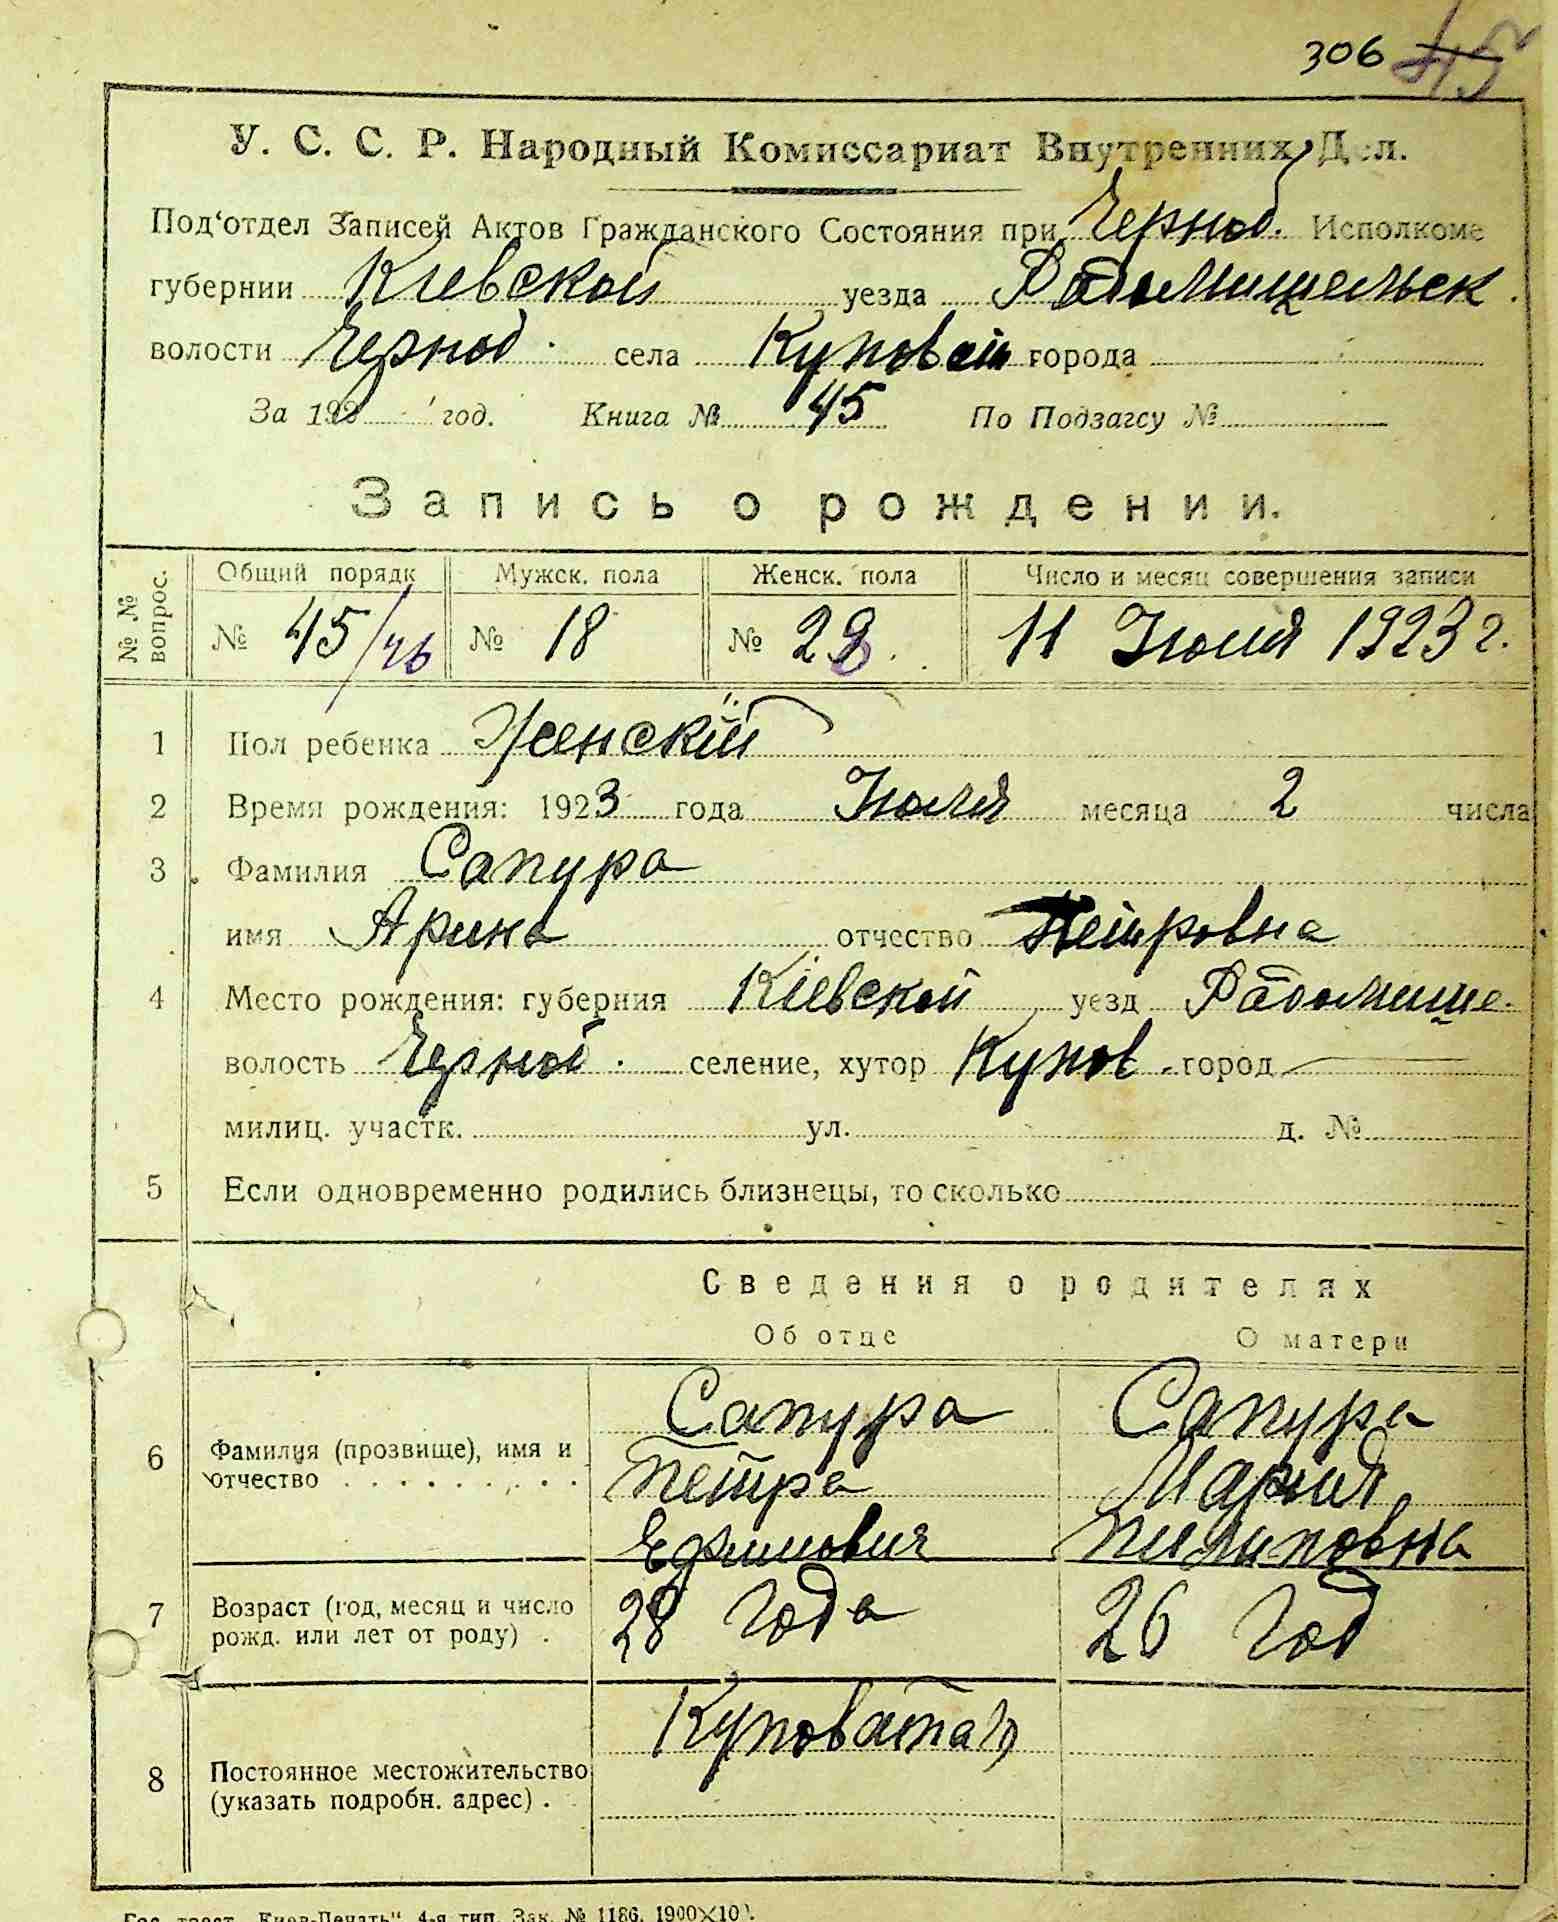 306 45
У. С. С. Р. Народный Комиссариат Внутренних Дел.
Под'отдел Записей Актов Гражданского Состояния при Черноб. Исполкоме
губернии Кіевской уезда Радомищельск.
волости Черноб. села Куповат города
За 192 год. Книга № 45 По Подзагсу №
Запись о рождении.
№ № вопрос. Общий порядк Мужск. пола Женск. пола Число и месяц совершения записи
№ 45/46 № 18 № 28 11 Июля 1923 г.
1 Пол ребенка Женскій
2 Время рождения: 1923 года Июля месяца 2 числа
3 Фамилия Сапура
имя Арина отчество Петровна
4 Место рождения: губерния Кіевской уезд Радомище.
волость Черноб. селение, хутор Купов. город
милиц. участк. ул. д. №
5 Если одновременно родились близнецы, то сколько
Сведения о родителях
Об отце О матери
Сапура Сапура
6 Фамилия (прозвище), имя и Петра Мария
отчество . . . . . . . . . Ефимович Пилиповна
7 Возраст (год, месяц и число 28 года 26 год
рожд. или лет от роду) .
Куповатая
8 Постоянное местожительство
(указать подробн. адрес) .
Гос. трест „Киев-Печать" 4-я тип. Зак. № 1186. 1900×10